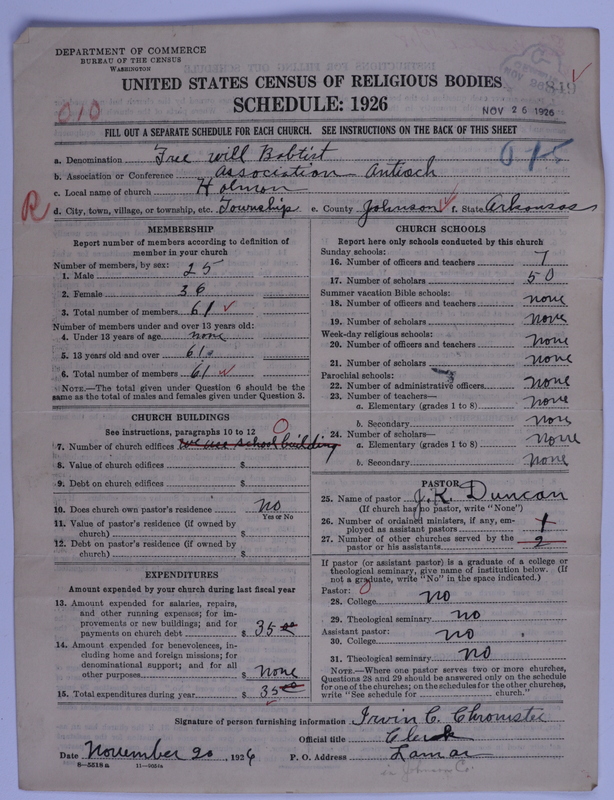 DEPARTMENT OF COMMERCE
BUREAU OF THE CENSUS
WASHINGTON
UNITED STATES CENSUS OF RELIGIOUS BODIES
SCHEDULE: 1926
NOV 26 1926
010
FILL OUT A SEPARATE SCHEDULE FOR EACH CHURCH. SEE INSTRUCTIONS ON THE BACK OF THIS SHEET
a. Denomination Free will Babtist
b. Association or Conference Association Antioch
c. Local name of church Holmon
R d. City, town, village, or township, etc. Township e. County Johnson f. State Arkansas
MEMBERSHIP
Report number of members according to definition of
member in your church
Number of members, by sex:
1. Male 25
2. Female 36
3. Total number of members 61
Number of members under and over 13 years old:
4. Under 13 years of age none
5. 13 years old and over 61
6. Total number of members 61
NOTE.—The total given under Question 6 should be the
same as the total of males and females given under Question 3.
CHURCH BUILDINGS
See instructions, paragraphs 10 to 12 0
7. Number of church edifices we use school building
8. Value of church edifices $
9. Debt on church edifices $
10. Does church own pastor's residence no
Yes or No
11. Value of pastor's residence (if owned by
church) $
12. Debt on pastor's residence (if owned by
church) $
EXPENDITURES
Amount expended by your church during last fiscal year
13. Amount expended for salaries, repairs,
and other running expenses; for im-
provements or new buildings; and for
payments on church debt $ 35 00
14. Amount expended for benevolences, in-
cluding home and foreign missions; for
denominational support; and for all
other purposes $ None
15. Total expenditures during year $ 35 00
CHURCH SCHOOLS
Report here only schools conducted by this church
Sunday schools:
16. Number of officers and teachers 7
17. Number of scholars 50
Summer vacation Bible schools:
18. Number of officers and teachers none
19. Number of scholars none
Week-day religious schools:
20. Number of officers and teachers none
21. Number of scholars none
Parochial schools:
22. Number of administrative officers none
23. Number of teachers—
a. Elementary (grades 1 to 8) none
b. Secondary none
24. Number of scholars—
a. Elementary (grades 1 to 8) none
b. Secondary none
PASTOR
25. Name of pastor J. K. Duncan
(If church has no pastor, write "None")
26. Number of ordained ministers, if any, em-
ployed as assistant pastors 1
27. Number of other churches served by the
pastor or his assistants 2
If pastor (or assistant pastor) is a graduate of a college or
theological seminary, give name of institution below. (If
not a graduate, write "No" in the space indicated.)
Pastor: 0
28. College no
29. Theological seminary no
Assistant pastor:
30. College no
31. Theological seminary no
NOTE.—Where one pastor serves two or more churches,
Questions 28 and 29 should be answered only on the schedule
for one of the churches; on the schedules for the other churches,
write "See schedule for church."
Signature of person furnishing information Irwin C. Chronister
Official title Clerk
Date November 20, 1926 P. O. Address Lamar
8-5518a
in Johnson Co.